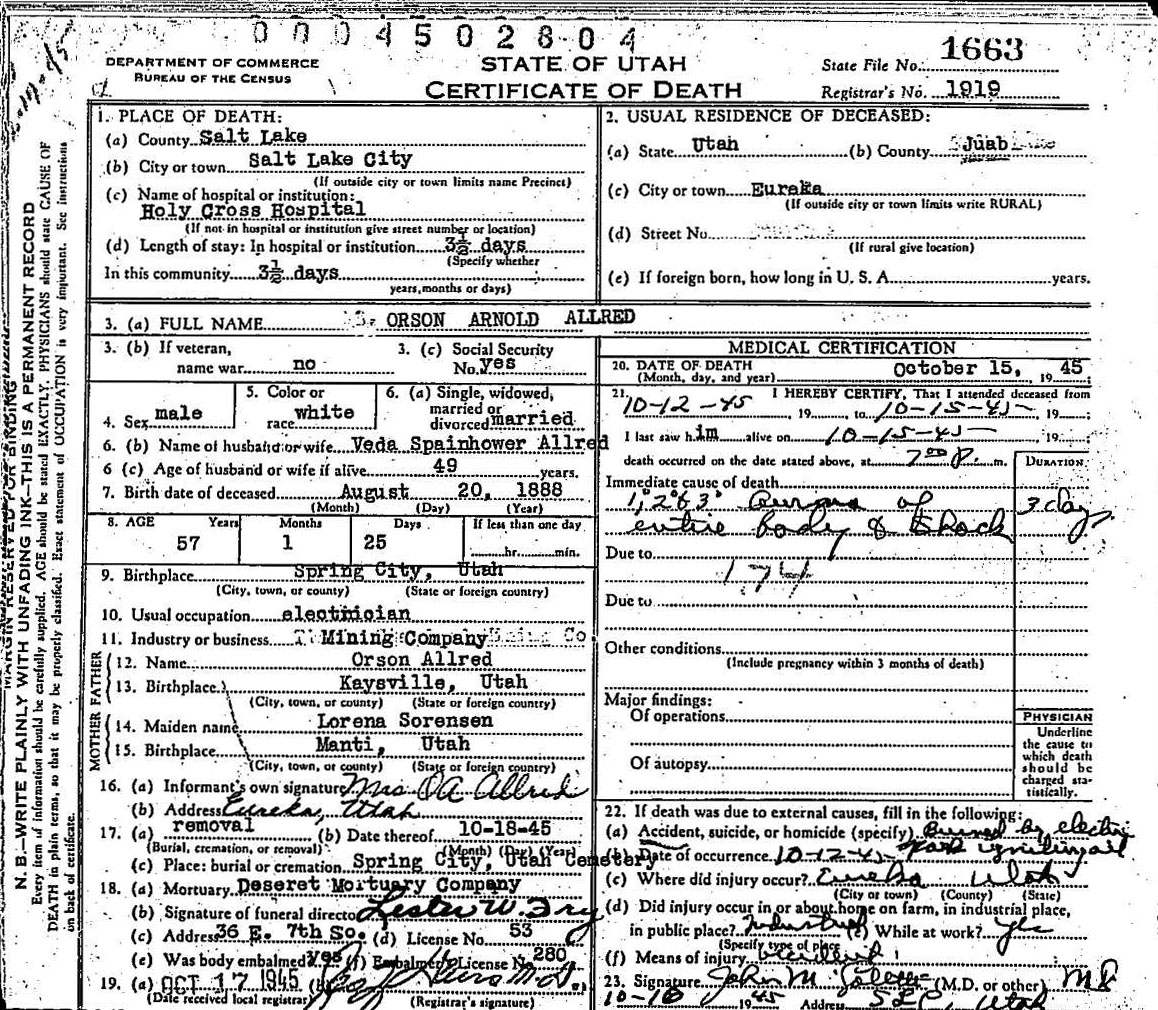 0004502804
DEPARTMENT OF COMMERCE
BUREAU OF THE CENSUS
STATE OF UTAH
CERTIFICATE OF DEATH
State File No. 1663
Registrar's No. 1919
MARGIN RESERVED FOR BINDING
N. B.—WRITE PLAINLY WITH UNFADING INK—THIS IS A PERMANENT RECORD
Every item of information should be carefully supplied. AGE should be stated EXACTLY. PHYSICIANS should state CAUSE OF
DEATH in plain terms, so that it may be properly classified. Exact statement of OCCUPATION is very important. See instructions
on back of certificate.
1. PLACE OF DEATH:
(a) County Salt Lake
(b) City or town Salt Lake City
(If outside city or town limits name Precinct)
(c) Name of hospital or institution:
Holy Cross Hospital
(If not in hospital or institution give street number or location)
(d) Length of stay: In hospital or institution 3½ days
(Specify whether
In this community 3½ days
years, months or days)
2. USUAL RESIDENCE OF DECEASED:
(a) State Utah (b) County Juab
(c) City or town Eureka
(If outside city or town limits write RURAL)
(d) Street No.
(If rural give location)
(e) If foreign born, how long in U. S. A. years.
3. (a) FULL NAME ORSON ARNOLD ALLRED
3. (b) If veteran, name war no
3. (c) Social Security No. yes
4. Sex male
5. Color or race white
6. (a) Single, widowed, married or divorced married
6. (b) Name of husband or wife Veda Spainhower Allred
6 (c) Age of husband or wife if alive 49 years.
7. Birth date of deceased August 20, 1888
(Month) (Day) (Year)
8. AGE Years Months Days If less than one day
57 1 25 hr. min.
9. Birthplace Spring City, Utah
(City, town, or county) (State or foreign country)
10. Usual occupation electrician
11. Industry or business Mining Company
FATHER
12. Name Orson Allred
13. Birthplace Kaysville, Utah
(City, town, or county) (State or foreign country)
MOTHER
14. Maiden name Lorena Sorensen
15. Birthplace Manti, Utah
(City, town, or county) (State or foreign country)
16. (a) Informant's own signature Mrs OA Allred
(b) Address Eureka, Utah
17. (a) removal (b) Date thereof 10-18-45
(Burial, cremation, or removal) (Month) (Day) (Year)
(c) Place: burial or cremation Spring City, Utah Cemetery
18. (a) Mortuary Deseret Mortuary Company
(b) Signature of funeral director Lester W. Fry
(c) Address 36 E. 7th So. (d) License No. 53
(e) Was body embalmed? yes (f) Embalmer's License N 280
19. (a) OCT 17 1945 (b)
(Date received local registrar) (Registrar's signature)
MEDICAL CERTIFICATION
20. DATE OF DEATH October 15, 19 45
(Month, day, and year)
21. I HEREBY CERTIFY, That I attended deceased from
10-12-45, 19 to 10-15-45, 19
I last saw h im alive on 10-15-45 19
death occurred on the date stated above, at 7 00 P. m.
DURATION
Immediate cause of death
1, 2 & 3 Burns of 3 days
entire body & shock
Due to
174
Due to
Other conditions
(Include pregnancy within 3 months of death)
Major findings:
Of operations
Of autopsy
PHYSICIAN
Underline
the cause to
which death
should be
charged sta-
tistically.
22. If death was due to external causes, fill in the following:
(a) Accident, suicide, or homicide (specify) Burned by electric
(b) Date of occurrence 10-12-45 spark igniting oil
(c) Where did injury occur? Eureka Utah
(City or town) (County) (State)
(d) Did injury occur in or about home on farm, in industrial place,
in public place? Industrial (e) While at work? yes
(Specify type of place
(f) Means of injury accident
23. Signature John M (M.D. or other) MD
19 45 Address SLC, Utah